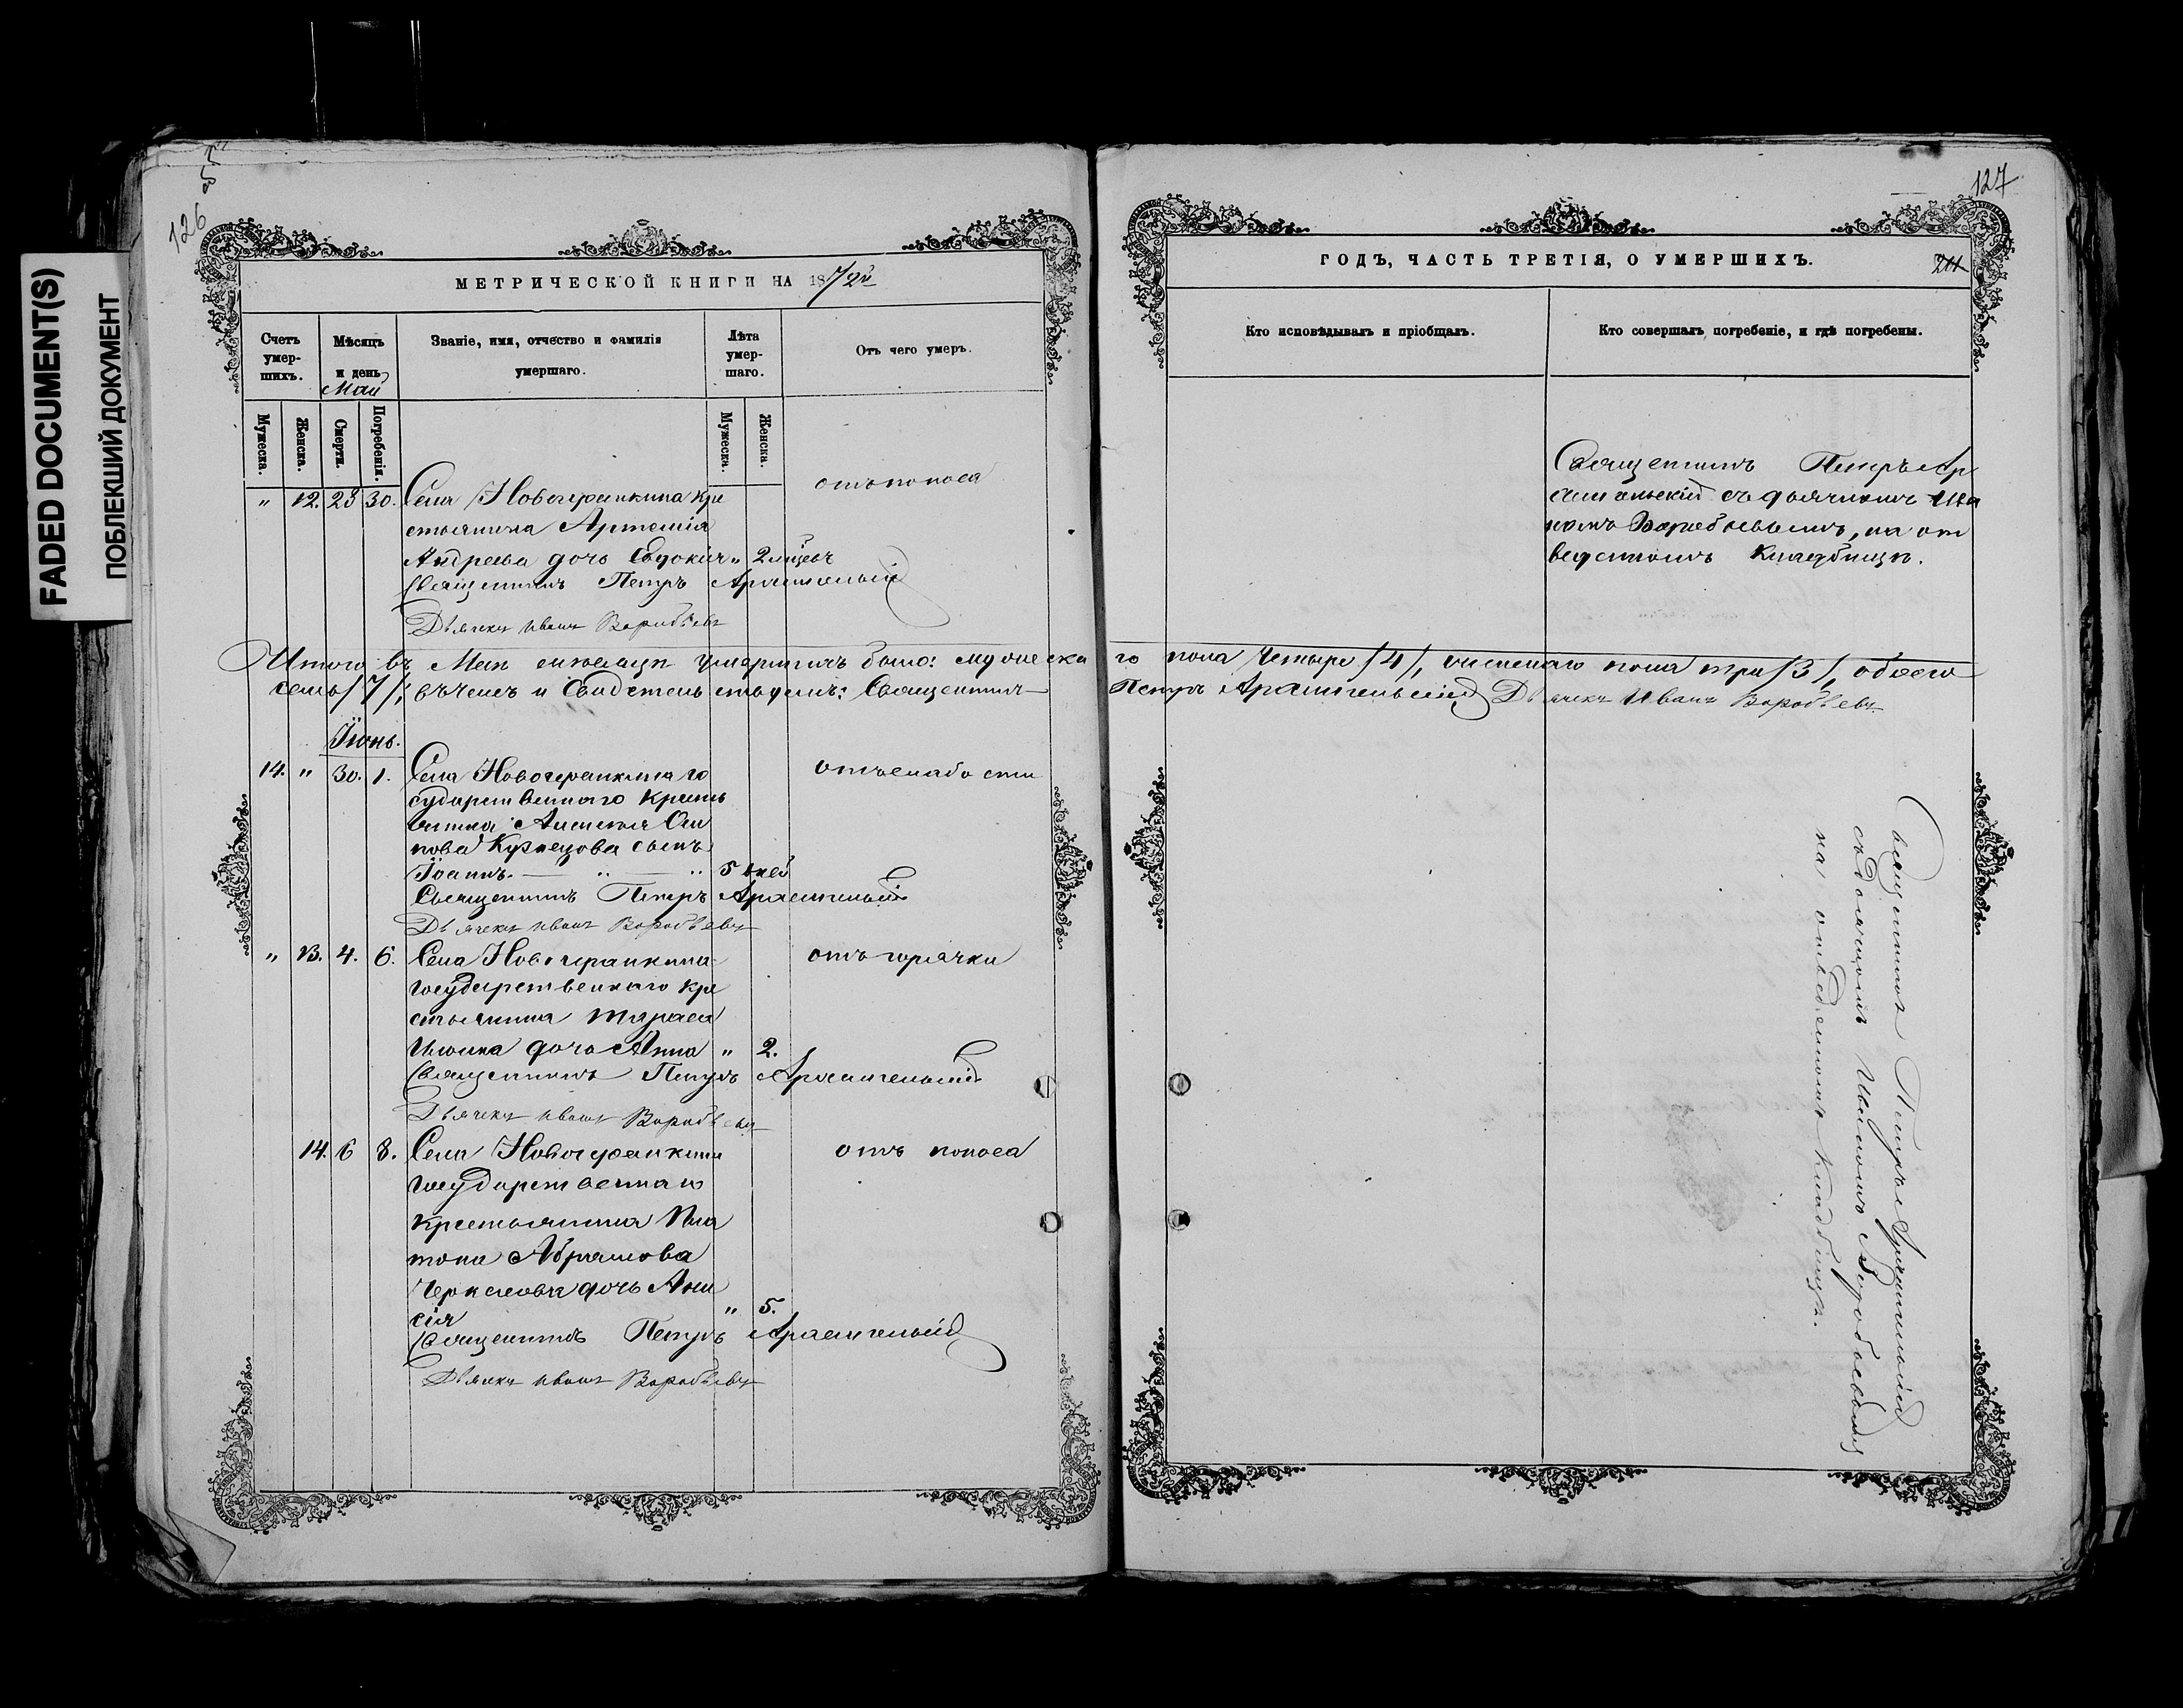 126 об
FADED DOCUMENT(S)
ПОБЛЕКШИЙ ДОКУМЕНТ
МЕТРИЧЕСКОЙ КНИГИ НА 1872й
Счетъ умер-шихъ.
Мѣсяцъ и день
Май
Званіе, имя, отчество и фамилія умершаго.
Лѣта умер-шаго.
Отъ чего умеръ.
Мужеска.
Женска.
Смерти.
Погребенія.
Мужеска.
Женска.
" 12. 28 30. Села Новогеранкина кре отъ поноса
стьянина Артемія
Андреева дочь Евдокія " 2 мцевъ
Священникъ Петръ Архангельскій
Дьячекъ Иванъ Воробьевъ
Итого въ Маѣ мѣсяцѣ умершихъ было: мужеска
семь /7/, въ чемъ и свидетельствуемъ: Священникъ
Іюнь.
14. " 30. 1. Села Новогеранкина го отъ слабости
сударственнаго кресть
янина Алексея Оси
пова Кузнецова сынъ
Іоаннъ. " " 5 дней
Священникъ Петръ Архангельскій
Дьячекъ Иванъ Воробьевъ
" 13. 4. 6. Села Новогеранкина отъ горячки
государственнаго кре
стьянина Тараса
Ильина дочь Анна " 2.
Священникъ Петръ Архангельскій
Дьячекъ Иванъ Воробьевъ
14. 6 8. Села Новогеранкина отъ поноса
государственнаго
крестьянина Пла
тона Абрамова
Черкасова дочь Ани
сія " 5.
Священникъ Петръ Архангельскій
Дьячекъ Иванъ Воробьевъ
127
ГОДЪ, ЧАСТЬ ТРЕТІЯ, О УМЕРШИХЪ.
Кто исповѣдывалъ и пріобщалъ.
Кто совершалъ погребеніе, и гдѣ погребены.
Священникъ Петръ Ар
хангельскій съ дьячкомъ Ива
номъ Воробьевымъ, на от
веденномъ кладбищѣ.
го пола четыре /4/, женскаго пола три /3/, обоего
Петръ Архангельскій Дьячекъ Иванъ Воробьевъ
Священникъ Петръ Архангельскій
съ дьячкомъ Иваномъ Воробьевымъ
на отведенномъ кладбищѣ.